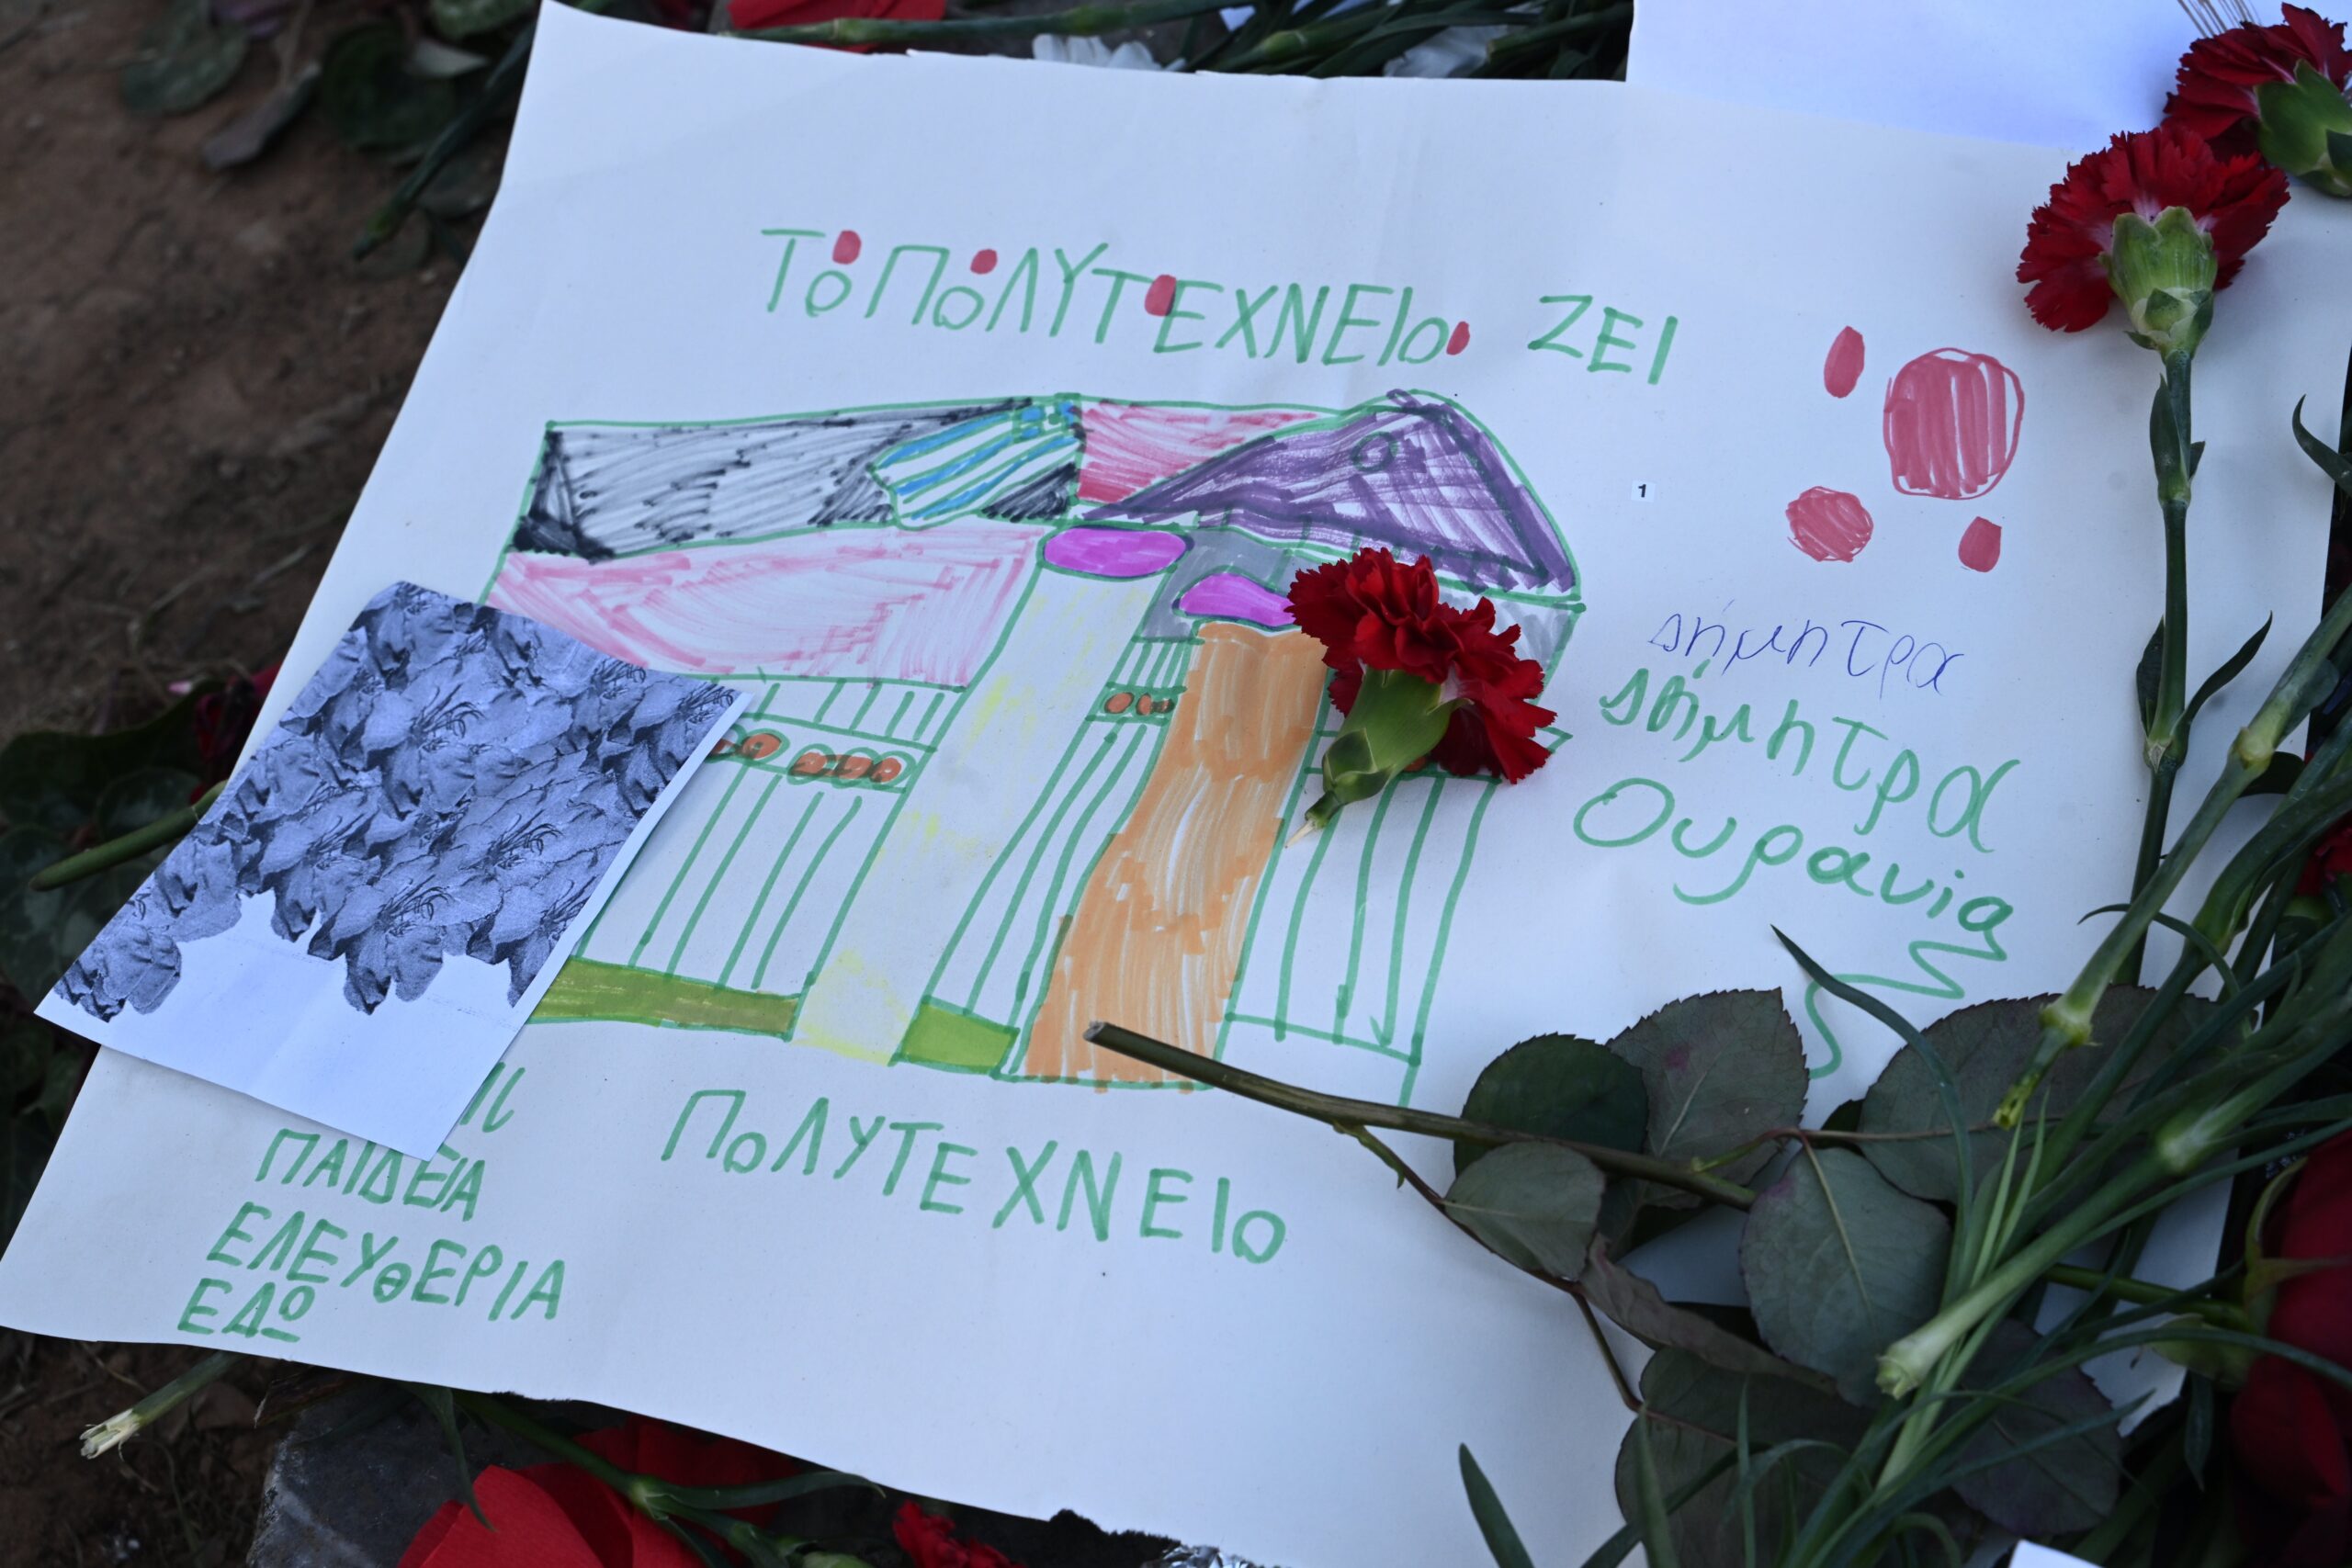 ΤΟ ΠΟΛΥΤΕΧΝΕΙΟ ΖΕΙ
1
Δήμητρα
Δήμητρα
Ουρανία
ΠΑΙΔΕΙΑ
ΕΛΕΥΘΕΡΙΑ
ΕΔΩ
ΠΟΛΥΤΕΧΝΕΙΟ